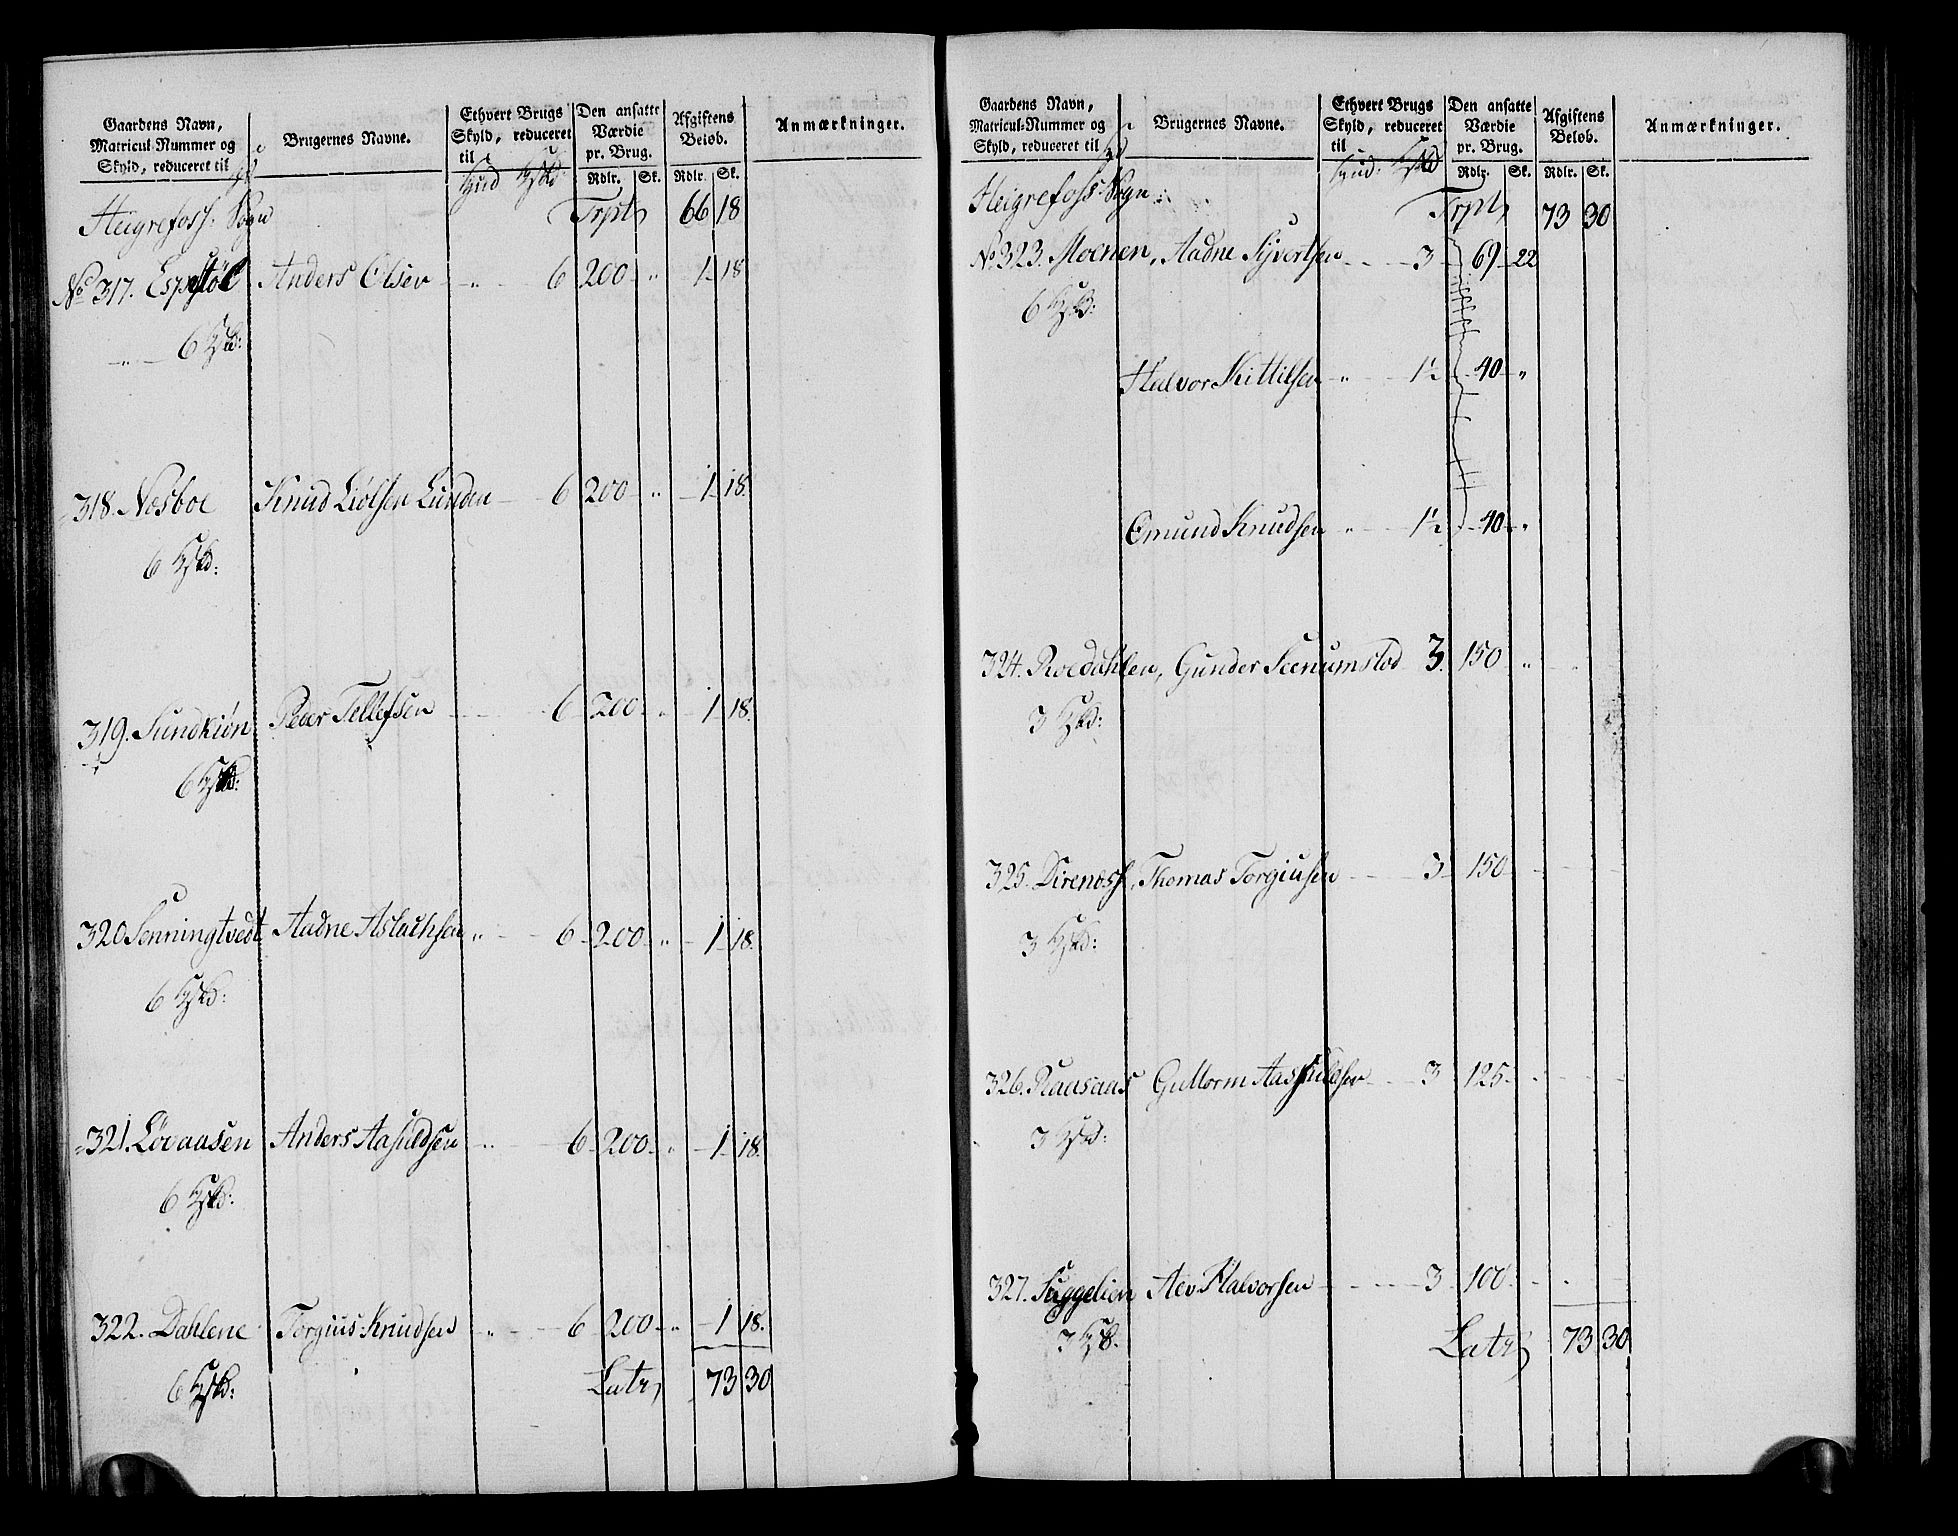 Gaardens Navn, Matricul-Nummer og Skyld, reduceret til | Brugernes Navne. | Ethvert Brugs Skyld, reduceret til | Den ansatte Værdie pr. Brug. | Afgiftens Beløb. | Anmærkninger.
Hud | Rdlr. | Sk. | Rdlr. | Sk.
Heigrefoss: Sogn Trpt 66 18
No 317. Espstøl Anders Olsen " 6 200 " 1 18
" 6
318. Nesboe Knud Liølsen Lunden 6 200 " 1 18.
6
319. Sundkiøn Peder Tellefsen 6 200 " 1 18.
6
320 Senningtvedt Aadne Aslachsen " 6 200 " 1 18.
6
321. Løvaasen Anders Aasuldsen " 6 200 " 1 18.
6
322. Dahlene Torgius Knudsen " 6 200 " 1 18.
6
Latr 73 30
Gaardens Navn, Matricul-Nummer og Skyld, reduceret til | Brugernes Navne. | Ethvert Brugs Skyld, reduceret til | Den ansatte Værdie pr. Brug. | Afgiftens Beløb. | Anmærkninger.
Hud: | Rdlr. | Sk. | Rdlr. | Sk.
Heigrefoss Sogn: Trpt 73 30
No 323. Moenen, Aadne Syvertsen 3 69 22
6
Halvor Kittilsen " 1½ 40 "
Emund Knudsen " 1½ 40 "
324. Roedahlen, Gunder Scenumstod 3. 150 "
3
325. Direness, Thomas Torgiusen 3 150
3
326. Raasaas Guttorm Aassuldsen 3 125
3
327. Suggelien Aev Halvorsen 3 100
3
Latr 73 30